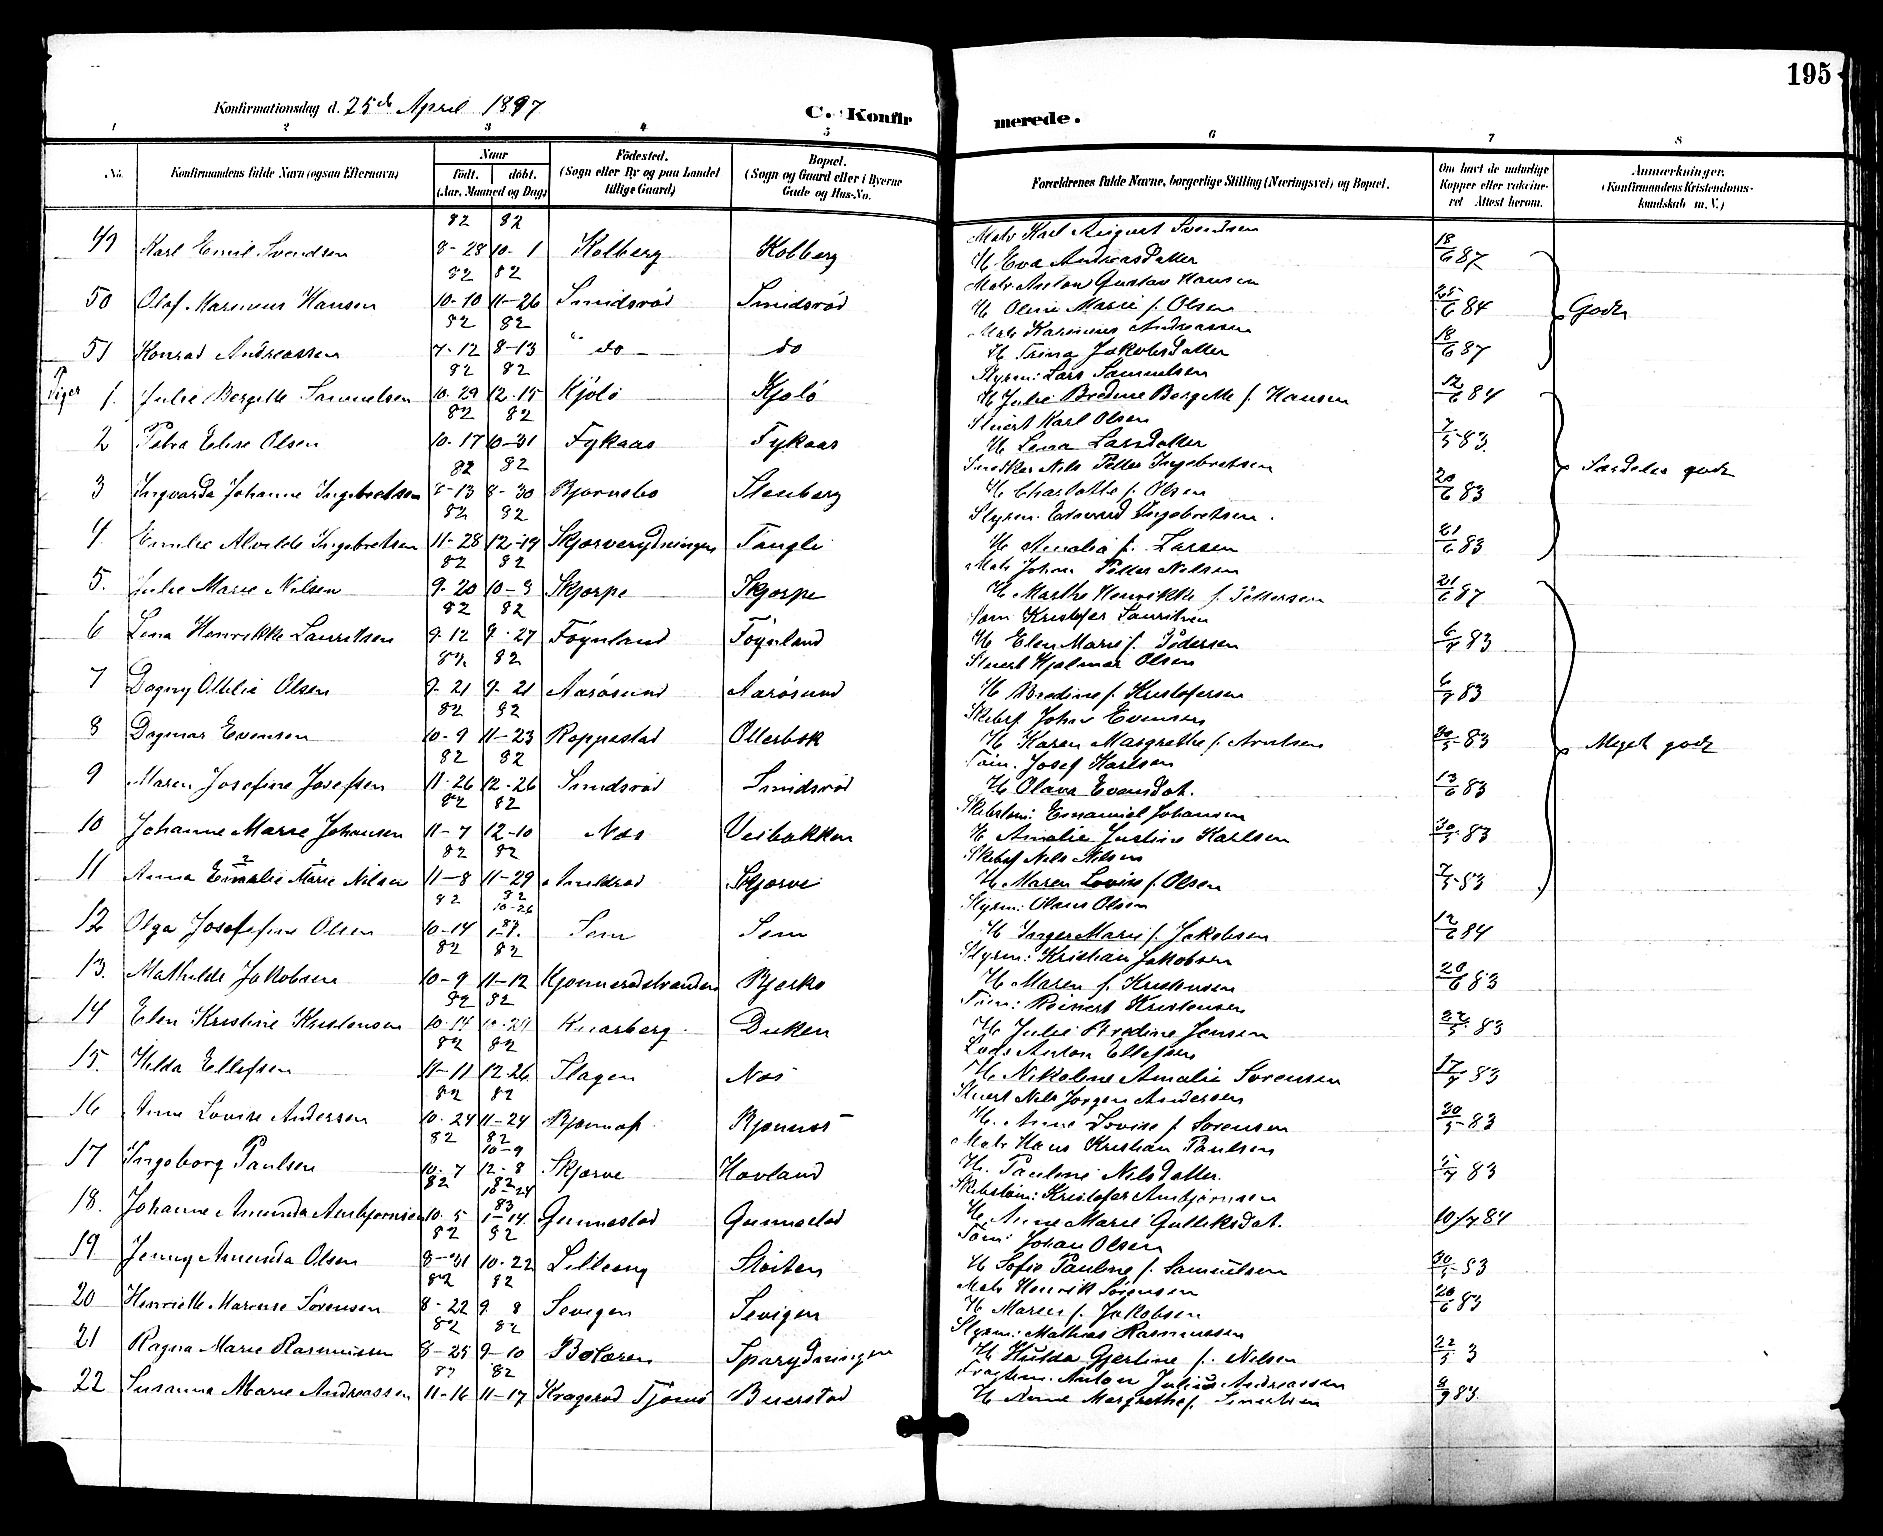 195
Konfirmationsdag d. 25de April 1897
C. Konfirmerede.
1 2 3 4 5 6 7 8
No. Konfirmandens fulde Navn (ogsaa Efternavn) Naar født. døbt. (Aar, Maaned og Dag) Fødested. (Sogn eller By og paa Landet tillige Gaard) Bopæl. (Sogn og Gaard eller i Byerne Gade og Hus-No. Forældrenes fulde Navne, borgerlige Stilling (Næringsvei) og Bopæl. Om havt de naturlige Kopper eller vaccineret. Attest herom. Anmerkninger. (Konfirmandens Kristendomskundskab m. V.)
82 82 Matr Karl August Svendsen
49 Karl Emil Svendsen 8-28 10-1 Kolberg Kolberg H. Eva Andreasdatter 18/6 87
82 82 Matr Anton Gustav Hansen
50 Olaf Marinius Hansen 10-10 11-26 Smidsrød Smidsrød H Oline Marie f. Olsen 25/6 84 Godt
82 82 Matr Andreassen
51 Konrad Andreassen 7-12 8-13 " do do H Trina Jakobsdatter 18/6 87
82 82 Styrm: Lars Samuelsen
Piger 1. Julie Bergitte Samuelsen 10-29 12-15 Kjølø Kjølø H Julie Bredine Bergitte f. Hansen 12/6 84
82 82 Stuert Karl Olsen
2 Petra Elise Olsen 10-17 10-31 Fykaas Fykaas H Lena Larsdatter 7/5 83.
82 82 Snedker Nils Petter Ingebretsen
3 Ingvarda Johanne Ingebretsen 8-13 8-30 Bjørnebo Stenberg H Charlotte f. Olsen 20/6 83 Særdeles godt
82 82 Styrm. Edvard Ingebretsen.
4. Emilie Alvilde Ingebretsen 11-28 12-19 Skjærverydningen Tangli H Amalia f. Larsen 21/6 83
82 82 Matr Johan Petter Nilsen
5. Julie Marie Nilsen 9-20 10-3 Skjerpe Skjerpe H Marthe Henrikke f. Pettersen 21/6 87
82 82 Tøm Kristofer Lauritsen
6 Lina Henrikke Lauritsen 9-12 9-27 Føynland Føynland H Elen Marie f. Pedersen 6/7 83
82 82 Stuert Hjalmar Olsen
7 Dagny Ottilie Olsen 9-21 9-21 Aarøsund Aarøsund H Bredine f. Kristofersen 6/7 83
82 82 Skibsf Johan Evensen
8 Dagmar Evensen 10-9 11-23 Roppestad Ollerbek H Karen Margrethe f. Arntsen 30/5 83 Meget godt
82 82 Tøm. Josef Karlsen
9 Maren Josefine Josefsen 11-26 12-26 Smidsrød Smidsrød H Olava Evensdat. 13/6 83
82 82 Skibstøm: Emanuel Johansen
10 Johanne Marie Johansen 11-7 12-10 Næs Veibakken H Amalie Justine Karlsen 30/5 83
82 82 Skibsf Nils Nilsen
11 Anna Emalie Marie Nilsen 11-8 11-29 Skjærve H Maren Lovise f. Olsen 7/5 83
82 82 10-26 Styrm: Olaus Olsen
12 Olga Josefine Olsen 10-14 83 1-7. Sem Sem H Inger Marie f. Jakobsen 12/6 84
82 82 Styrm: Kristian Jakobsen
13. Mathilde Jakobsen 10-9 11-12 Kjønnerødstranden Bjerke H Maren f. Kristensen 20/6 83
82 82 Tøm: Reinert Kristensen
14 Elen Kristine Kristensen 10-14 10-29 Knarberg Duken H Julie Bredine Jensen 22/5 83
82 82 Lods Anton Ellefsen
15. Hilda Ellefsen 11-11 12-26 Slagen Næs H. Nikoline Amalie Sørensen 17/7 83
82 82 Stuert Nils Jørgen Andersen
16 Anne Lovise Andersen 10-24 11-24 Bjønnes H. Anne Lovise f Sørensen 30/5 83
82 82 10-9 Matr Hans Kristian Paulsen
17 Ingeborg Paulsen 10-7 12-8 Skjærve Hovland H. Pauline Nilsdatter. 83
82 82 10-24 Skibstøm: Kristofer Ambjørnsen
18. Johanne Amunda Ambjørnsen 10-5 83 1-14 Gunnestad Gunnestad H. Anne Marie Gulliksdat. 10/7 84
82 82 Tøm: Johan Olsen
19 Jenny Amunda Olsen 8-31 10-22 Lilleeng Støiten H Sofie Pauline f. Samuelsen 30/5 83
82 82 Matr Henrik Sørensen
20 Henriette Marense Sørensen 8-22 9-8 Sevigen Sevigen H Maren f. Jakobsen 20/6 83
82 82 Styrm: Mathias Rasmussen
21 Ragna Marie Rasmussen 8-25 9-10 Bolæren Sparydningen H Hulda Gjertine f. Nilsen 22/5 3
82 82 Anton Julius Andreassen
22 Susanna Marie Andreassen 11-16 11-17 Kragerød Tjømø Buerstad H Anne Margrethe f. 8/9 83.